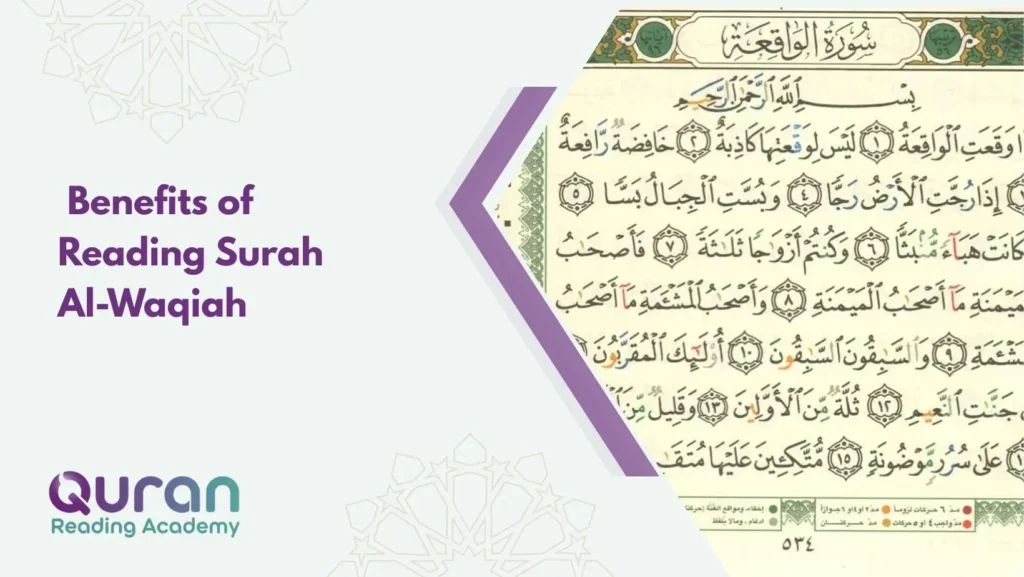 Benefits of
Reading Surah
Al-Waqiah
Quran
Reading Academy
سُورَةُ الوَاقِعَةِ
بِسْمِ ٱللَّهِ ٱلرَّحْمَٰنِ ٱلرَّحِيمِ
وَقَعَتِ ٱلْوَاقِعَةُ ١ لَيْسَ لِوَقْعَتِهَا كَاذِبَةٌ ٢ خَافِضَةٌ رَّافِعَةٌ
إِذَا رُجَّتِ ٱلْأَرْضُ رَجًّا ٤ وَبُسَّتِ ٱلْجِبَالُ بَسًّا ٥
كَانَتْ هَبَآءً مُّنۢبَثًّا ٦ وَكُنتُمْ أَزْوَٰجًا ثَلَٰثَةً ٧ فَأَصْحَٰبُ
مَيْمَنَةِ مَآ أَصْحَٰبُ ٱلْمَيْمَنَةِ ٨ وَأَصْحَٰبُ ٱلْمَشْـَٔمَةِ مَآ أَصْحَٰبُ
شْـَٔمَةِ ٩ وَٱلسَّٰبِقُونَ ٱلسَّٰبِقُونَ ١٠ أُو۟لَٰٓئِكَ ٱلْمُقَرَّبُونَ
جَنَّٰتِ ٱلنَّعِيمِ ١٢ ثُلَّةٌ مِّنَ ٱلْأَوَّلِينَ ١٣ وَقَلِيلٌ مِّنَ
عَلَىٰ سُرُرٍ مَّوْضُونَةٍ ١٥ مُّتَّكِـِٔينَ عَلَيْهَا مُتَقَ
مدّ ٦ حركات لزوماً مدّ ٢ أو ٤ أو ٦ جوازاً إخفاء، ومواقع الغُنَّة (حركتا
مدّ واجب ٤ أو ٥ حركات مدّ حركتـان ادغام ، ومالا يُلفَظ
٥٣٤